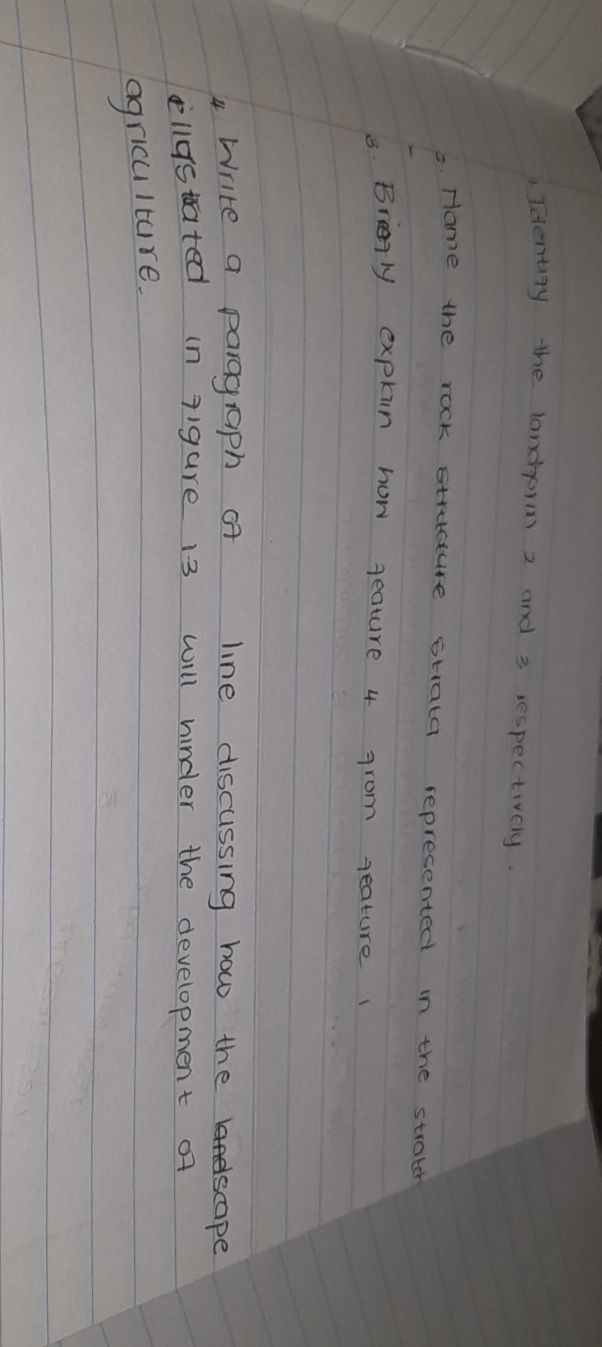 1. Identify the landform 2 and 3 respectively.
2. Name the rock structure strata represented in the
3. Briefly explain how feature 4 from feature 1
4. Write a paragraph of line discussing how the landscape
illustrated in figure 13 will hinder the development of
agriculture.